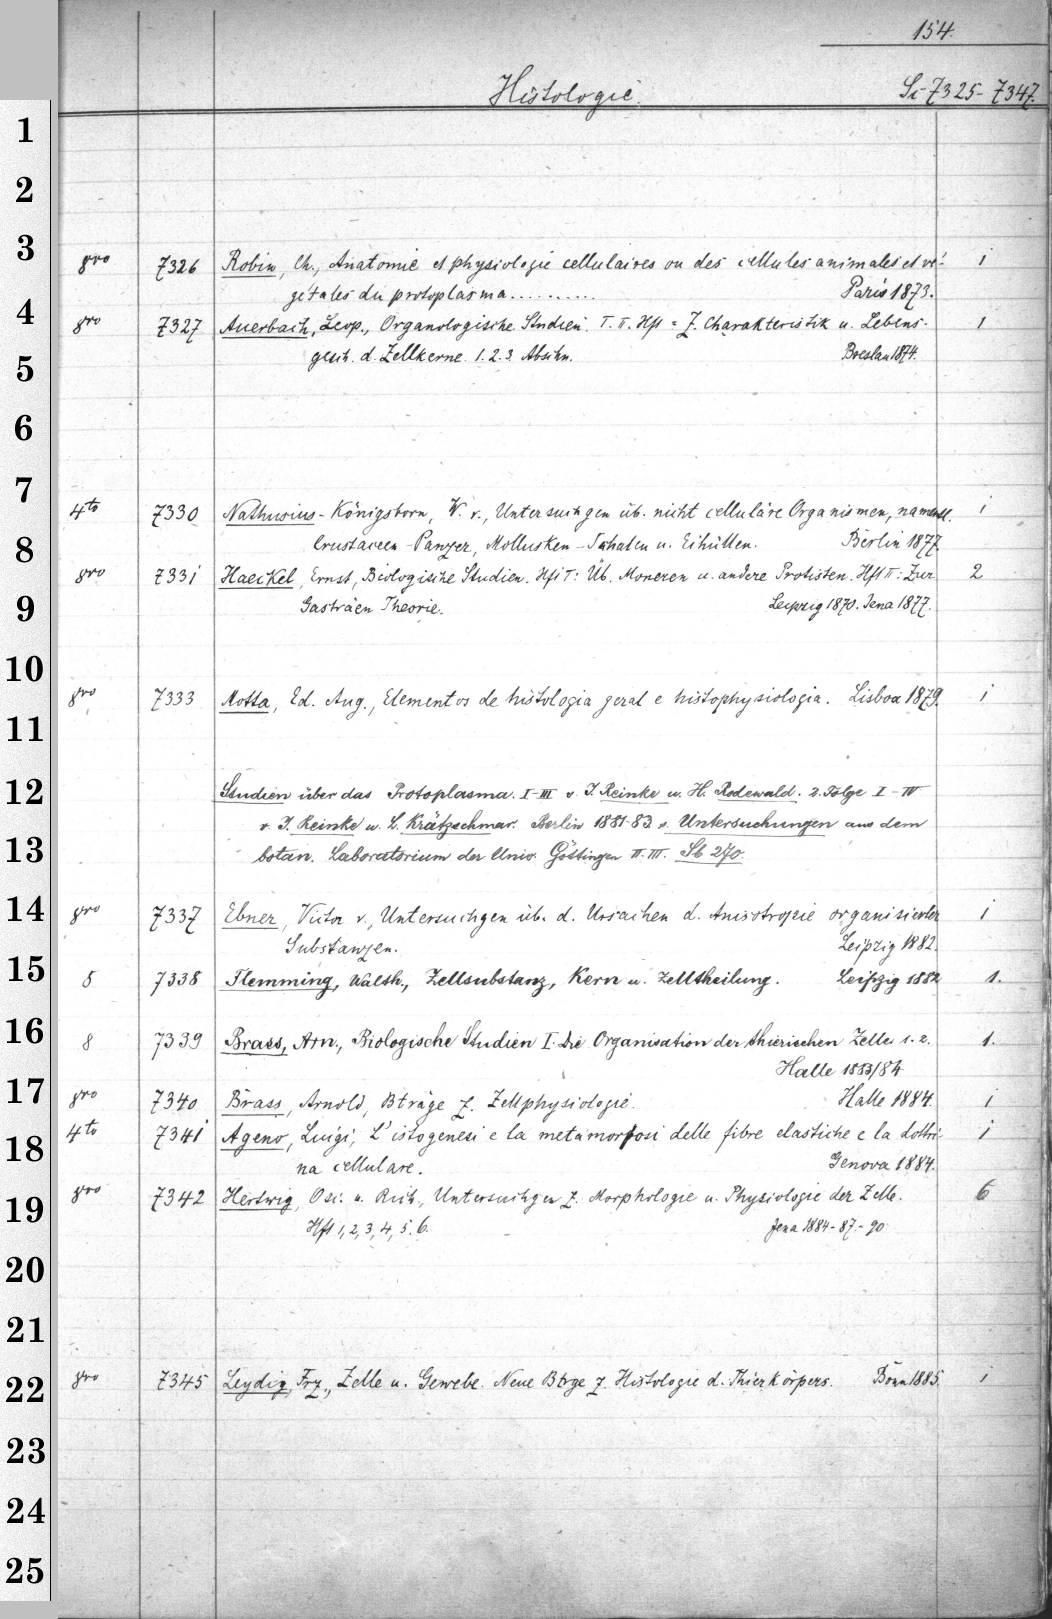 154.
Histologie. Si 7325-7347.
1
2
3
8vo 7326 Robin, Ch., Anatomie et physiologie cellulaires ou des cellules animales et vé- 1
gétales du protoplasma.......... Paris 1873.
4
8vo 7327 Auerbach, Leop., Organologische Studien. I. II. Hft = Z. Charakteristik u. Lebens- 1
gesch. d. Zellkerne. 1. 2. 3 Abschn. Breslau 1874.
5
6
7
4to 7330 Nathusius-Königsborn, W. v., Untersuchgen üb. nicht celluläre Organismen, namentl. 1
Crustaceen-Panzer, Mollusken-Schalen u. Eihüllen. Berlin 1877.
8
8vo 7331 Haeckel, Ernst, Biologische Studien. Hft I: Üb. Moneren u. andere Protisten. Hft II: Zur 2
Gasträen-Theorie. Leipzig 1870. Jena 1877.
9
10
8vo 7333 Motta, Ed. Aug., Elementos de histologia geral e histophysiologia. Lisboa 1879. 1
11
12
Studien über das Protoplasma. I-III v. J. Reinke u. H. Rodewald. 2. Folge I-IV
v. J. Reinke u. L. Krätzschmar. Berlin 1881-83 v. Untersuchungen aus dem
13
botan. Laboratorium der Univ. Göttingen II. III. St 270.
14
8vo 7337 Ebner, Victor v., Untersuchgen üb. d. Ursachen d. Anisotropie organisierter 1
Substanzen. Leipzig 1882.
15
8 7338 Flemming, Walth., Zellsubstanz, Kern u. Zelltheilung. Leipzig 1882 1.
16
8 7339 Brass, Arn., Biologische Studien I. Die Organisation der thierischen Zelle. 1. 2. 1.
Halle 1883/84
17
8vo 7340 Brass, Arnold, Bträge z. Zellphysiologie. Halle 1884. 1
4to 7341 Ageno, Luigi, L'istogenesi e la metamorfosi delle fibre elastiche e la dottri- 1
18
na cellulare. Genova 1884.
8vo 7342 Hertwig, Osc. u. Rich., Untersuchgen z. Morphologie u. Physiologie der Zelle. 6
19
Hft 1, 2, 3, 4, 5. 6. Jena 1884-87.-90
20
21
22
8vo 7345 Leydig, Frz., Zelle u. Gewebe. Neue Btrge z. Histologie d. Thierkörpers. Bonn 1885. 1
23
24
25